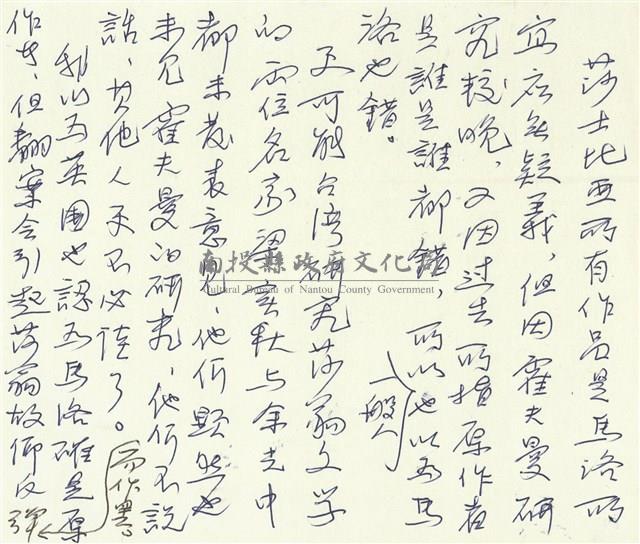 莎士比亚所有作品是馬洛所
寫应無疑義，但因霍夫曼研
究較晚，又因过去所指原作者
是誰是誰都錯，所以一般人也以為馬
洛也錯。
更可能台湾研究莎翁文学
的两位名家梁实秋与余光中
都未发表意见，他們顯然也
未见霍夫曼的研究，他們不說
話，其他人更不必談了。
我以为英國也認为馬洛確是原
作者，但翻案会引起莎翁故鄉反弹
而作罢
南投縣政府文化局
Cultural Bureau of Nantou County Government